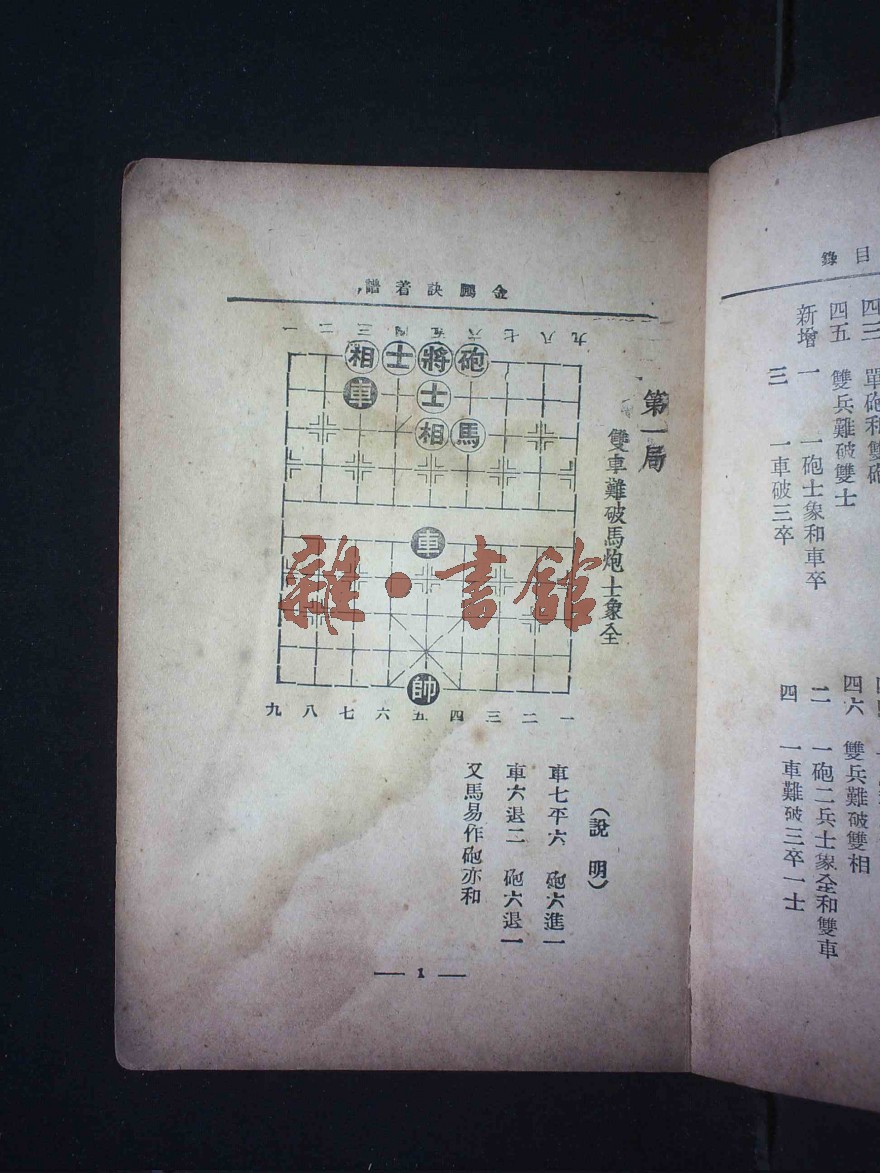 目錄
四三 單砲和雙砲
四五 雙兵難破雙士
四六 雙兵難破雙相
新增
一 一砲士象和車卒
二 一砲二兵士象全和雙車
三 一車破三卒
四 一車難破三卒一士
金鵬訣着譜
第一局
雙車難破馬炮士象全
一二三四五六七八九
相士將砲
車士
相馬
車
帥
九八七六五四三二一
雜·書館
（說明）
車七平六 砲六進一
車六退二 砲六退一
又馬易作砲亦和
— 1 —